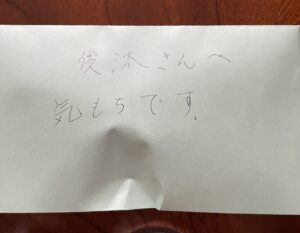 俊添さんへ
気もちです。